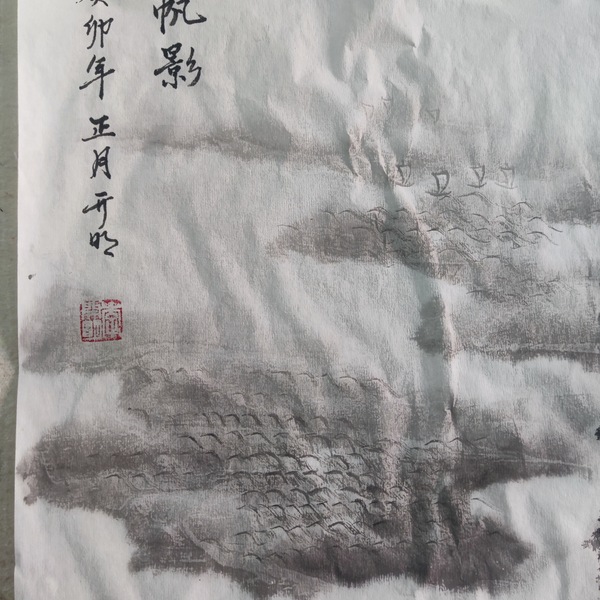 帆影
癸卯年 正月 开明